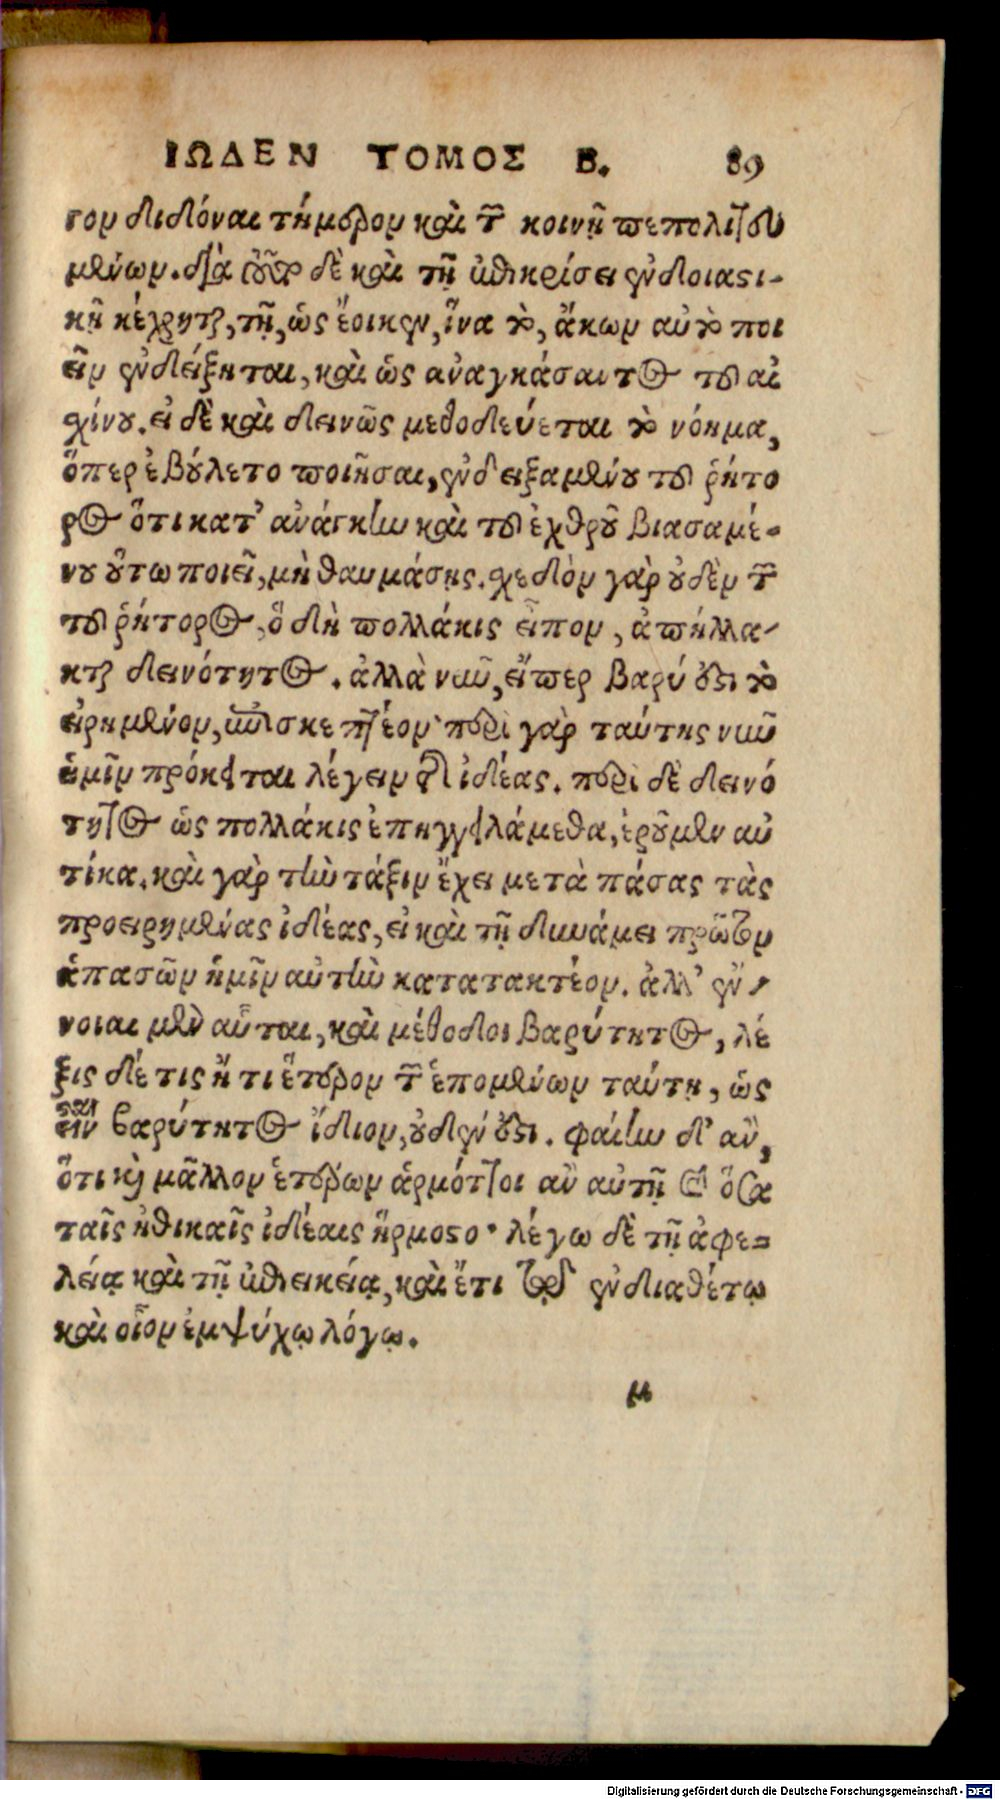 ΙΩΔΕΝ ΤΟΜΟΣ Β. 89
τον διδόναι τήμερον καὶ τῶν κοινῇ πεπολιτευ
μένων. διὰ τοῦτο δὲ καὶ τῇ ἐπικρίσει ἐνδοιαστι-
κῇ κέχρηται, τῇ, ὡς ἔοικεν, ἵνα τὸ, ἄκων αὐτὸ ποι
εῖν ἐνδείξηται, καὶ ὡς ἀναγκάσαντος τοῦ αἰ
χίνου. εἰ δὲ καὶ δεινῶς μεθοδεύεται τὸ νόημα,
ὅπερ ἐβούλετο ποιῆσαι, ἐνδειξαμένου τοῦ ῥήτο
ρος ὅτι κατ’ ἀνάγκην καὶ τοῦ ἐχθροῦ βιασαμέ-
νου οὕτω ποιεῖ, μὴ θαυμάσῃς. χεδὸν γὰρ οὐδὲν τῶν
τοῦ ῥήτορος, ὃ δὴ πολλάκις εἶπον, ἀπήλλα-
κται δεινότητος. ἀλλὰ νῦν, εἴπερ βαρύ ἐστι τὸ
εἰρημένον, ἐπισκεπτέον· περὶ γὰρ ταύτης νῦν
ἡμῖν πρόκειται λέγειν τῆς ἰδέας. περὶ δὲ δεινό
τητος ὡς πολλάκις ἐπηγγειλάμεθα, ἐροῦμεν αὐ
τίκα. καὶ γὰρ τὴν τάξιν ἔχει μετὰ πάσας τὰς
προειρημένας ἰδέας, εἰ καὶ τῇ δυνάμει πρῶτον
ἁπασῶν ἡμῖν αὐτὴν κατατακτέον. ἀλλ’ ἔν-
νοιαι μὲν αὗται, καὶ μέθοδοι βαρύτητος, λέ
ξις δέ τις ἤ τι ἕτερον τῶν ἑπομένων ταύτῃ, ὡς
εἶναι βαρύτητος ἴδιον, οὐδέν ἐστι. φαίην δ’ ἂν,
ὅτι καὶ μᾶλλον ἑτέρων ἁρμόττοι ἂν αὐτῇ καὶ ὅσα
ταῖς ἠθικαῖς ἰδέαις ἥρμοστο· λέγω δὲ τῇ ἀφε=
λείᾳ καὶ τῇ ἐπιεικείᾳ, καὶ ἔτι τῷ ἐνδιαθέτῳ
καὶ οἷον ἐμψύχῳ λόγῳ.
μ
Digitalisierung gefördert durch die Deutsche Forschungsgemeinschaft - DFG